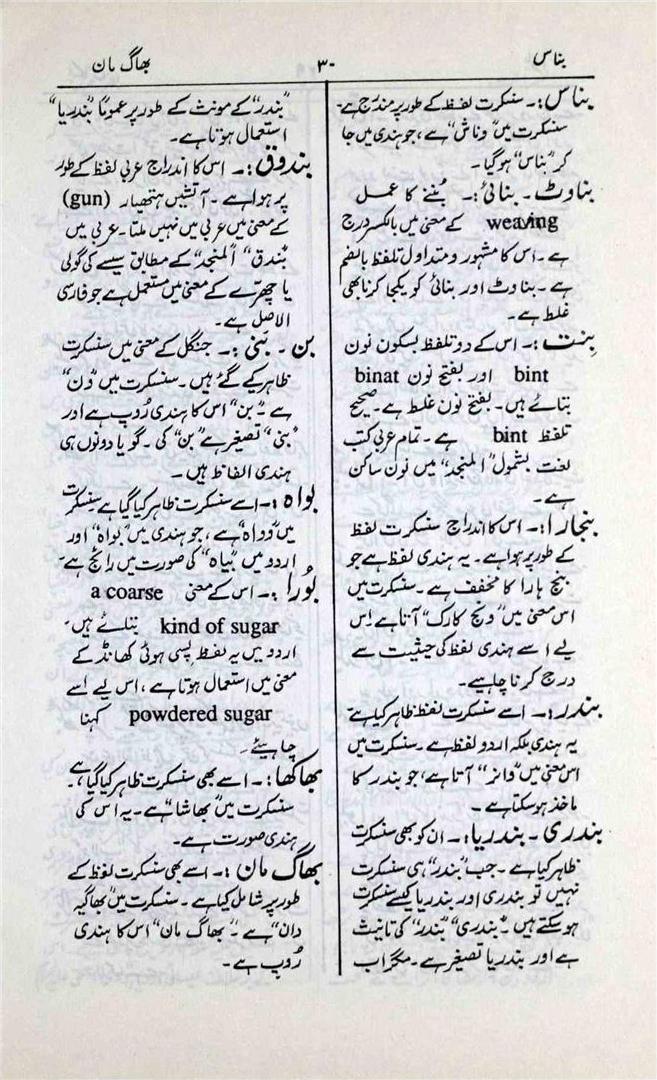 بناس
۳۰
بھاگ مان
بناس:۔ سنسکرت لفظ کے طور پر مندرج ہے۔
سنسکرت میں "وناش" ہے، جو ہندی میں جا
کر "بناس" ہوگیا۔
بناوٹ۔ بنائی:۔ بُننے کا عمل
weaving کے معنی میں بالکسر درج
ہے۔ اس کا مشہور و متداول تلفظ بالضم
ہے۔ بناوٹ اور بنائی کو یکجا کرنا بھی
غلط ہے۔
بِنت:۔ اس کے دو تلفظ بسکون نون
bint اور بفتح نون binat
بتائے ہیں۔ بفتح نون غلط ہے۔ صحیح
تلفظ bint ہے۔ تمام عربی کتب
لغت بشمول "المنجد" میں نون ساکن
ہے۔
بنجارا:۔ اس کا اندراج سنسکرت لفظ
کے طور پر ہوا ہے۔ یہ ہندی لفظ ہے جو
بنج ہارا کا مخفف ہے۔ سنسکرت میں
اس معنی میں "ونج کارک" آتا ہے اِس
لیے اسے ہندی لفظ کی حیثیت سے
درج کرنا چاہیے۔
بندر:۔ اسے سنسکرت لفظ ظاہر کیا ہے
یہ ہندی بلکہ اردو لفظ ہے۔ سنسکرت میں
اس معنی میں "وانر" آتا ہے، جو بندر کا
ماخذ ہوسکتا ہے۔
بندری۔ بندریا:۔ ان کو بھی سنسکرت
ظاہر کیا ہے۔ جب "بندر" ہی سنسکرت
نہیں تو بندری اور بندریا کیسے سنسکرت
ہوسکتے ہیں۔ "بندری" "بندر" کی تانیث
ہے اور بندریا تصغیر ہے۔ مگر اب
"بندر" کے مونث کے طور پر عموماً "بندریا"
استعمال ہوتا ہے۔
بندوق:۔ اس کا اندراج عربی لفظ کے طور
پر ہوا ہے۔ آتشیں ہتھیار (gun)
کے معنی میں عربی میں نہیں ملتا۔ عربی میں
"بُندق" "المنجد" کے مطابق سیسے کی گولی
یا چھرّے کے معنی میں مستعمل ہے جو فارسی
الاصل ہے۔
بن۔ بنی:۔ جنگل کے معنی میں سنسکرت
ظاہر کیے گئے ہیں۔ سنسکرت میں "وَن"
ہے۔ "بن" اس کا ہندی رُوپ ہے اور
"بنی" تصغیر ہے "بن" کی۔ گویا دونوں ہی
ہندی الفاظ ہیں۔
بواہ:۔ اسے سنسکرت ظاہر کیا گیا ہے سنسکرت
میں "وِواہ" ہے، جو ہندی میں "بواہ" اور
اردو میں "بیاہ" کی صورت میں رائج ہے۔
بُورا:۔ اس کے معنی a coarse
kind of sugar بتلائے ہیں۔
اردو میں یہ لفظ پسی ہوئی کھانڈ کے
معنی میں استعمال ہوتا ہے، اس لیے اسے
powdered sugar کہنا
چاہیئے۔
بھاکھا:۔ اسے بھی سنسکرت ظاہر کیا گیا ہے۔
سنسکرت میں "بھاشا" ہے۔ یہ اس کی
ہندی صورت ہے۔
بھاگ مان:۔ اسے بھی سنسکرت لفظ کے
طور پر شامل کیا ہے۔ سنسکرت میں "بھاگیہ
دان" ہے۔ "بھاگ مان" اس کا ہندی
رُوپ ہے۔